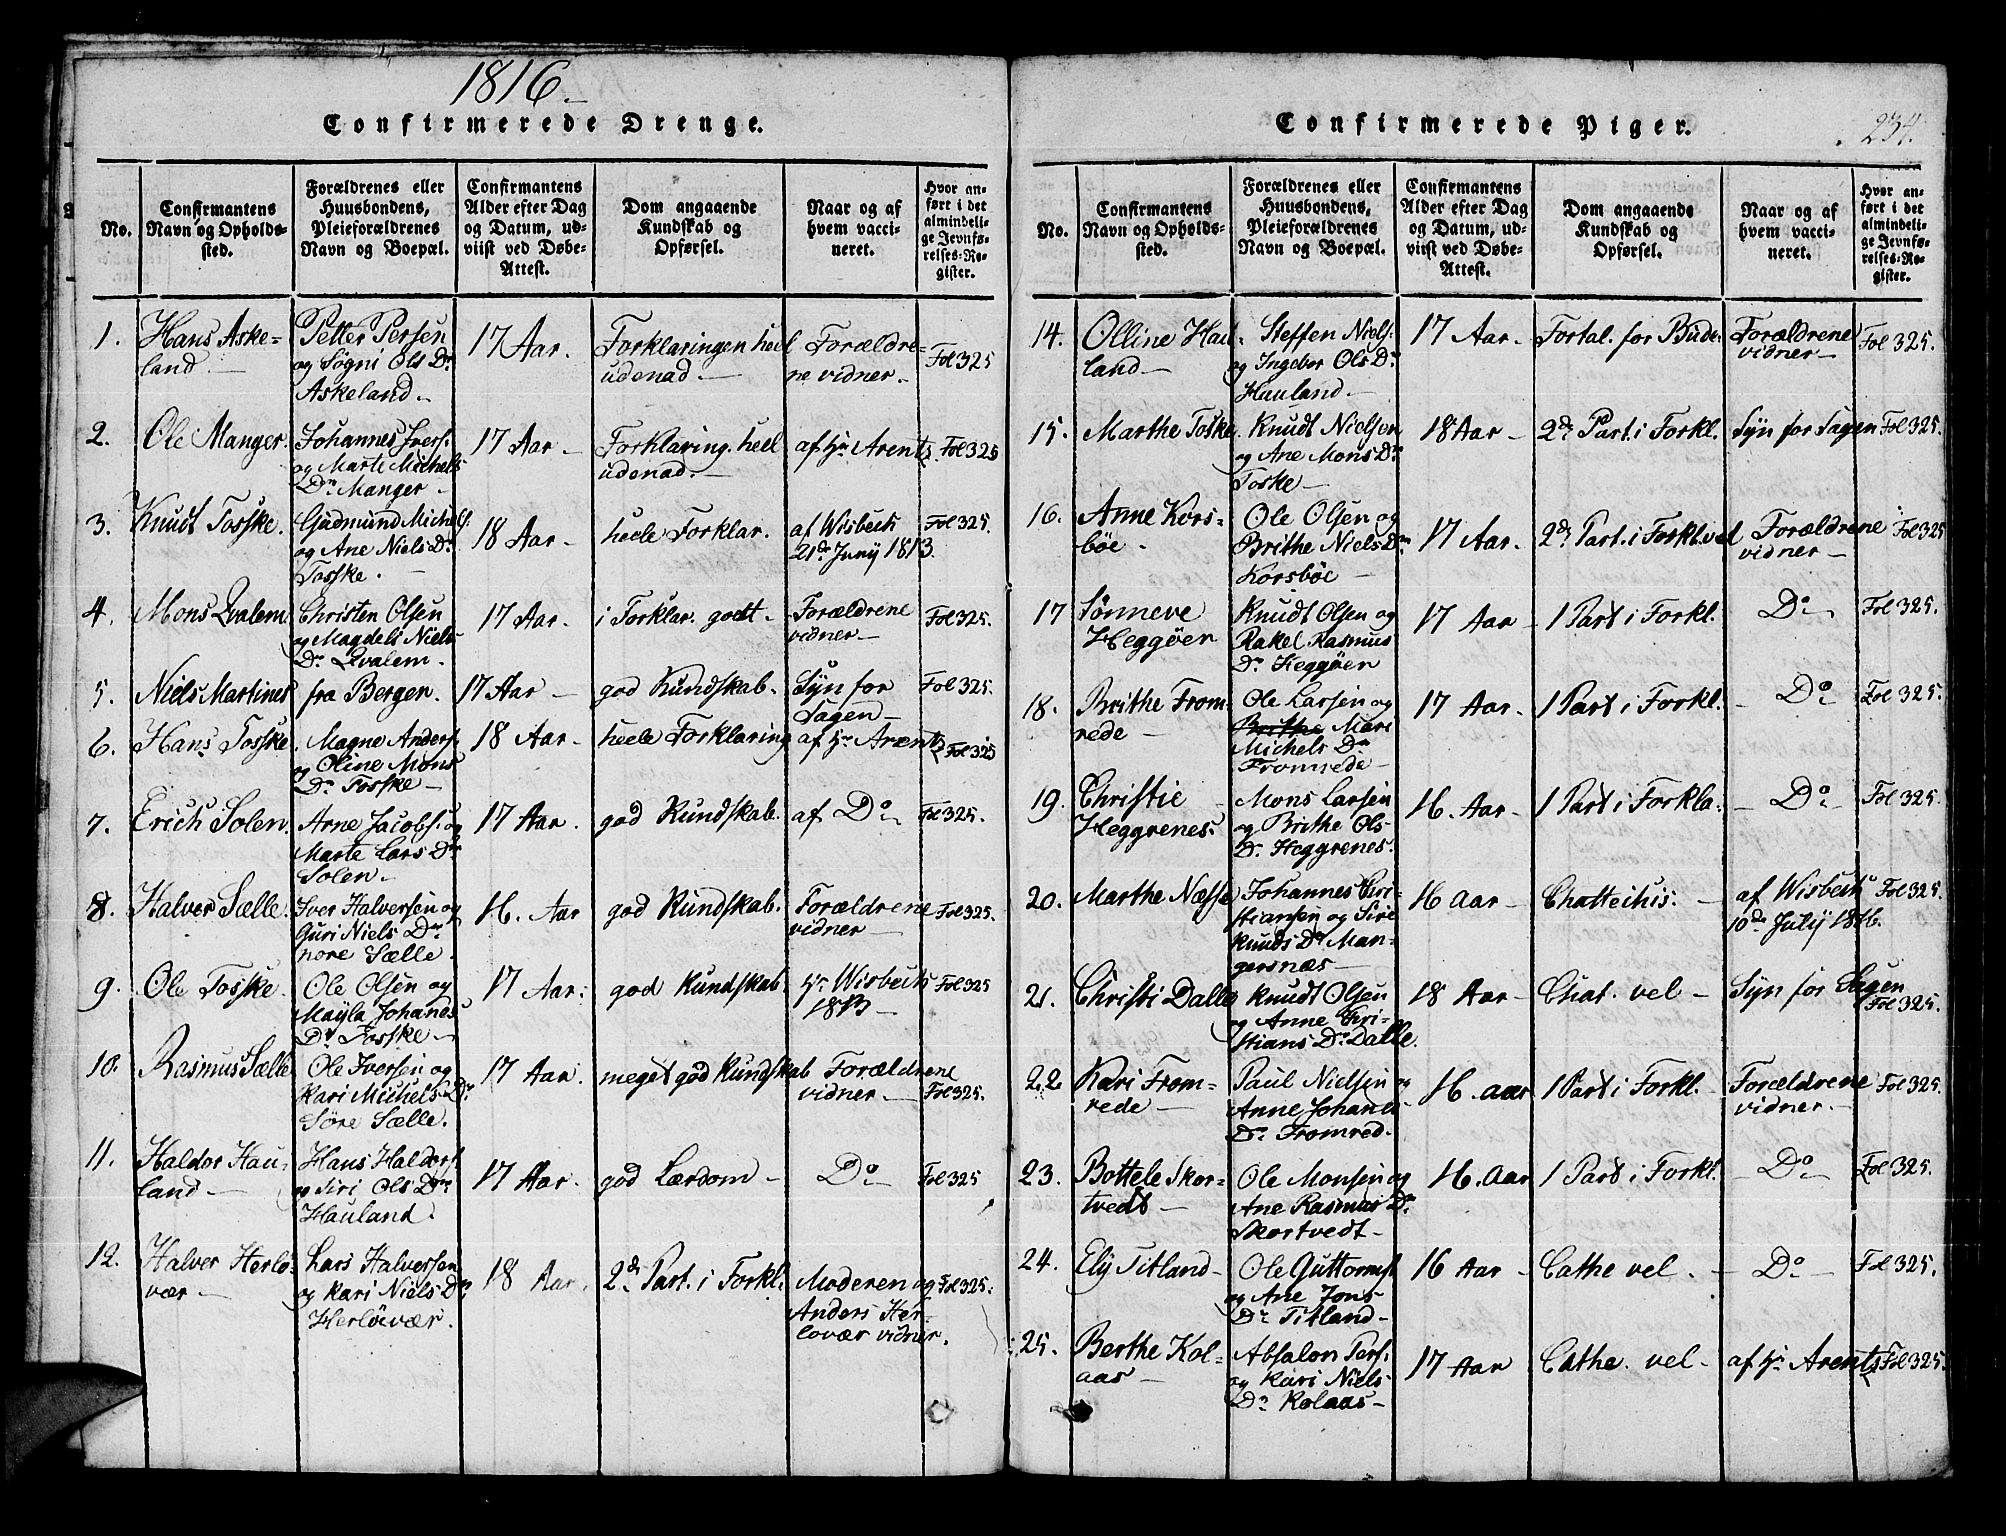 1816
Confirmerede Drenge.
No.
Confirmantens
Navn og Opholds-
sted.
Forældrenes eller
Huusbondens,
Pleieforældrenes
Navn og Boepæl.
Confirmantens
Alder efter Dag
og Datum, ud-
viist ved Døbe-
Attest.
Dom angaaende
Kundskab og
Opførsel.
Naar og af
hvem vacci-
neret.
Hvor an-
ført i det
almindeli-
ge Jevnfø-
relses-Re-
gister.
1.
Hans Aske-
land.
Petter Persen
og Søgni Ols Dr
Askeland
17 Aar.
Forklaringen heel
udenad.
Forældre-
ne vidner.
Fol 325
2.
Ole Manger.
Johannes Ivers:
og Marte Michels
Dr Manger
17 Aar
Forklaring. heel
udenad.
af Hr Arents
Fol 325
3.
Knudt Tosske.
Gudmund Michels:
og Ane Niels Dr
Tosske.
18 Aar
heele Forklar.
af Wisbech
21de Junij 1813.
Fol 325.
4.
Mons Qvalem
Christen Olsen
og Magdeli Niels
Dr Qvalem.
17 Aar.
i Forklar. godt
Forældrene
vidner
Fol 325.
5.
Niels Martines
fra Bergen.
17 Aar
god Kundskab.
Syn for
Sagen
Fol 325.
6.
Hans Tosske
Magne Anders.
og Oline Mons
Dr Tosske
18 Aar
heele Forklaring
af Hr Arents
Fol 325
7.
Erich Solen.
Arne Jacobs: og
Marte Lars Dr
Solen
17 Aar.
god Kundskab.
af Do
Fol 325.
8.
Halver Sælle.
Iver Halversen og
Guri Niels Dr
nore Sælle.
16. Aar
god Kundskab.
Forældrene
vidner
Fol 325.
9.
Ole Toske.
Ole Olsen og
Mayla Johanes
Dr Toske
17 Aar:
god Kundskab
Hr Wisbech
1813
Fol 325
10.
Rasmus Sælle
Ole Iversen og
Kari Michels Dr
Søre Sælle.
17 Aar.
meget god Kundskab
Forældrene
vidner.
Fol 325.
11.
Haldor Hau-
land
Hans Haldors.
og Siri Ols Dr
Hauland.
17 Aar.
god Lærdom
Do
Fol 325
12.
Halver Herlø-
vær
Lars Halversen
og Kari Niels Dr
Herløivær.
18 Aar.
2de Part. i Forkl.
Moderen og
Anders Her-
lovær vidner.
Fol 325.
Confirmerede Piger.
234.
No.
Confirmantens
Navn og Opholds-
sted.
Forældrenes eller
Huusbondens,
Pleieforældrenes
Navn og Boepæl.
Confirmantens
Alder efter Dag
og Datum, ud-
viist ved Døbe-
Attest.
Dom angaaende
Kundskab og
Opførsel.
Naar og af
hvem vacci-
neret.
Hvor an-
ført i det
almindeli-
ge Jevnfø-
relses-Re-
gister.
14.
Olline Hau-
land
Steffen Niels:
og Ingebor Ols Dr
Hauland
17 Aar
Fortal. for Bude.
Forældrene
vidner
Fol 325.
15.
Marthe Toske.
Knudt Nielsen
og Ane Mons Dr
Toske
18 Aar
2de Part. i Forkl.
Syn for Sagen
Fol 325.
16.
Anne Kors-
bøe.
Ole Olsen og
Brithe Niels Dr
Korsbøe
17 Aar.
2de Part. i Forkl. vel
Forældrene
vidner
Fol 325
17
Sønneve
Heggøen
Knudt Olsen og
Rakel Rasmus
Dr Heggøen
17 Aar
1 Part i Forkl.
Do
Fol 325.
18.
Brithe From-
rede
Ole Larsen og
Brithe Mari
Michels Dr
Fromrede
17 Aar
1 Part i Forkl.
Do
Fol 325.
19.
Christie
Heggrenes:
Mons Larsen
og Brithe Ols
Dr Heggrenes.
16. Aar
1 Part i Forkla.
Do
Fol 325.
20.
Marthe Næsse
Johannes Cri-
stiansen og Siri
Knuds Dr Man-
gersnæs
16 Aar
Chattechis:
af Wisbech
10de July 1816.
Fol 325.
21.
Christi Dalle
Knudt Olsen
og Anne Cri-
stians Dr Dalle.
18 Aar
Chat. vel
Syn for Sagen
Fol 325.
22
Kari From-
rede
Paul Nielsen og
Anne Johanes
Dr Fromred.
16. Aar
1 Part i Forkl.
Forældrene
vidner.
Fol 325.
23.
Bottele Skor-
tvedt
Ole Monsen og
Ane Rasmus Dr
Skortvedt
16. Aar
1 Part i Forkl.
Do
Fol 325.
24.
Ely Titland
Ole Guttorms
og Ane Jons
Dr Titland
16 Aar
Cathe vel.
Do
Fol 325.
25.
Berthe Kol-
aas
Absalon Pers:
og Kari Niels
Dr Kolaas
17 Aar
Cathe. vel
af Hr Arents
Fol 325.